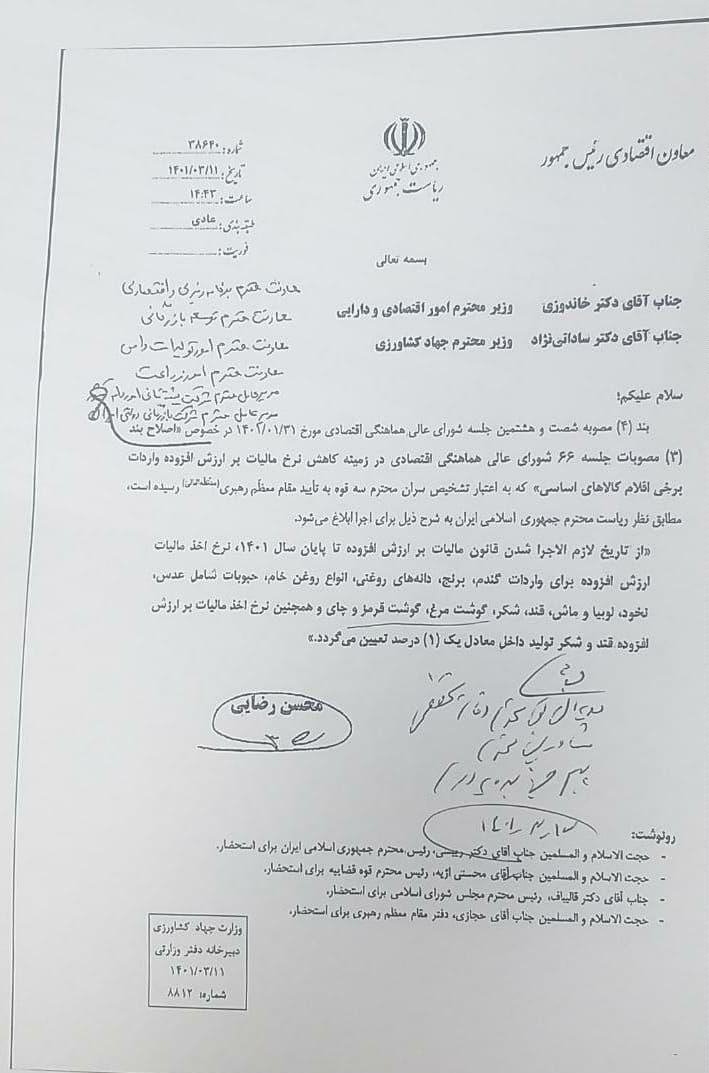 معاون اقتصادی رئیس جمهور
جمهوری اسلامی ایران
ریاست جمهوری
شماره: ۳۸۶۴۰
تاریخ: ۱۴۰۱/۰۳/۱۱
ساعت: ۱۴:۴۳
طبقه بندی: عادی
فوریت:
بسمه تعالی
جناب آقای دکتر خاندوزی وزیر محترم امور اقتصادی و دارایی
جناب آقای دکتر ساداتی‌نژاد وزیر محترم جهاد کشاورزی
معاونت محترم برنامه ریزی و اقتصادی
معاونت محترم توسعه بازرگانی
معاونت محترم امور تولیدات دامی
معاونت محترم امور زراعت
مدیرعامل محترم شرکت پشتیبانی امور دام کشور
مدیرعامل محترم شرکت بازرگانی دولتی ایران
سلام علیکم؛
بند (۴) مصوبه شصت و هشتمین جلسه شورای عالی هماهنگی اقتصادی مورخ ۱۴۰۲/۰۱/۳۱ در خصوص «اصلاح بند
(۳) مصوبات جلسه ۶۶ شورای عالی هماهنگی اقتصادی در زمینه کاهش نرخ مالیات بر ارزش افزوده واردات
برخی اقلام کالاهای اساسی» که به اعتبار تشخیص سران محترم سه قوه به تأیید مقام معظم رهبری(مدظله‌العالی) رسیده است،
مطابق نظر ریاست محترم جمهوری اسلامی ایران به شرح ذیل برای اجرا ابلاغ می‌شود.
«از تاریخ لازم الاجرا شدن قانون مالیات بر ارزش افزوده تا پایان سال ۱۴۰۱، نرخ اخذ مالیات
ارزش افزوده برای واردات گندم، برنج، دانه‌های روغنی، انواع روغن خام، حبوبات شامل عدس،
نخود، لوبیا و ماش، قند، شکر، گوشت مرغ، گوشت قرمز و چای و همچنین نرخ اخذ مالیات بر ارزش
افزوده قند و شکر تولید داخل معادل یک (۱) درصد تعیین می‌گردد.»
محسن رضایی
رونوشت:
- حجت الاسلام و المسلمین جناب آقای دکتر رییسی، رئیس محترم جمهوری اسلامی ایران برای استحضار.
- حجت الاسلام و المسلمین جناب آقای محسنی اژیه، رئیس محترم قوه قضاییه برای استحضار.
- جناب آقای دکتر قالیباف، رئیس محترم مجلس شورای اسلامی برای استحضار.
- حجت الاسلام و المسلمین جناب آقای حجازی، دفتر مقام معظم رهبری برای استحضار.
وزارت جهاد کشاورزی
دبیرخانه دفتر وزارتی
۱۴۰۱/۰۳/۱۱
شماره: ۸۸۱۲